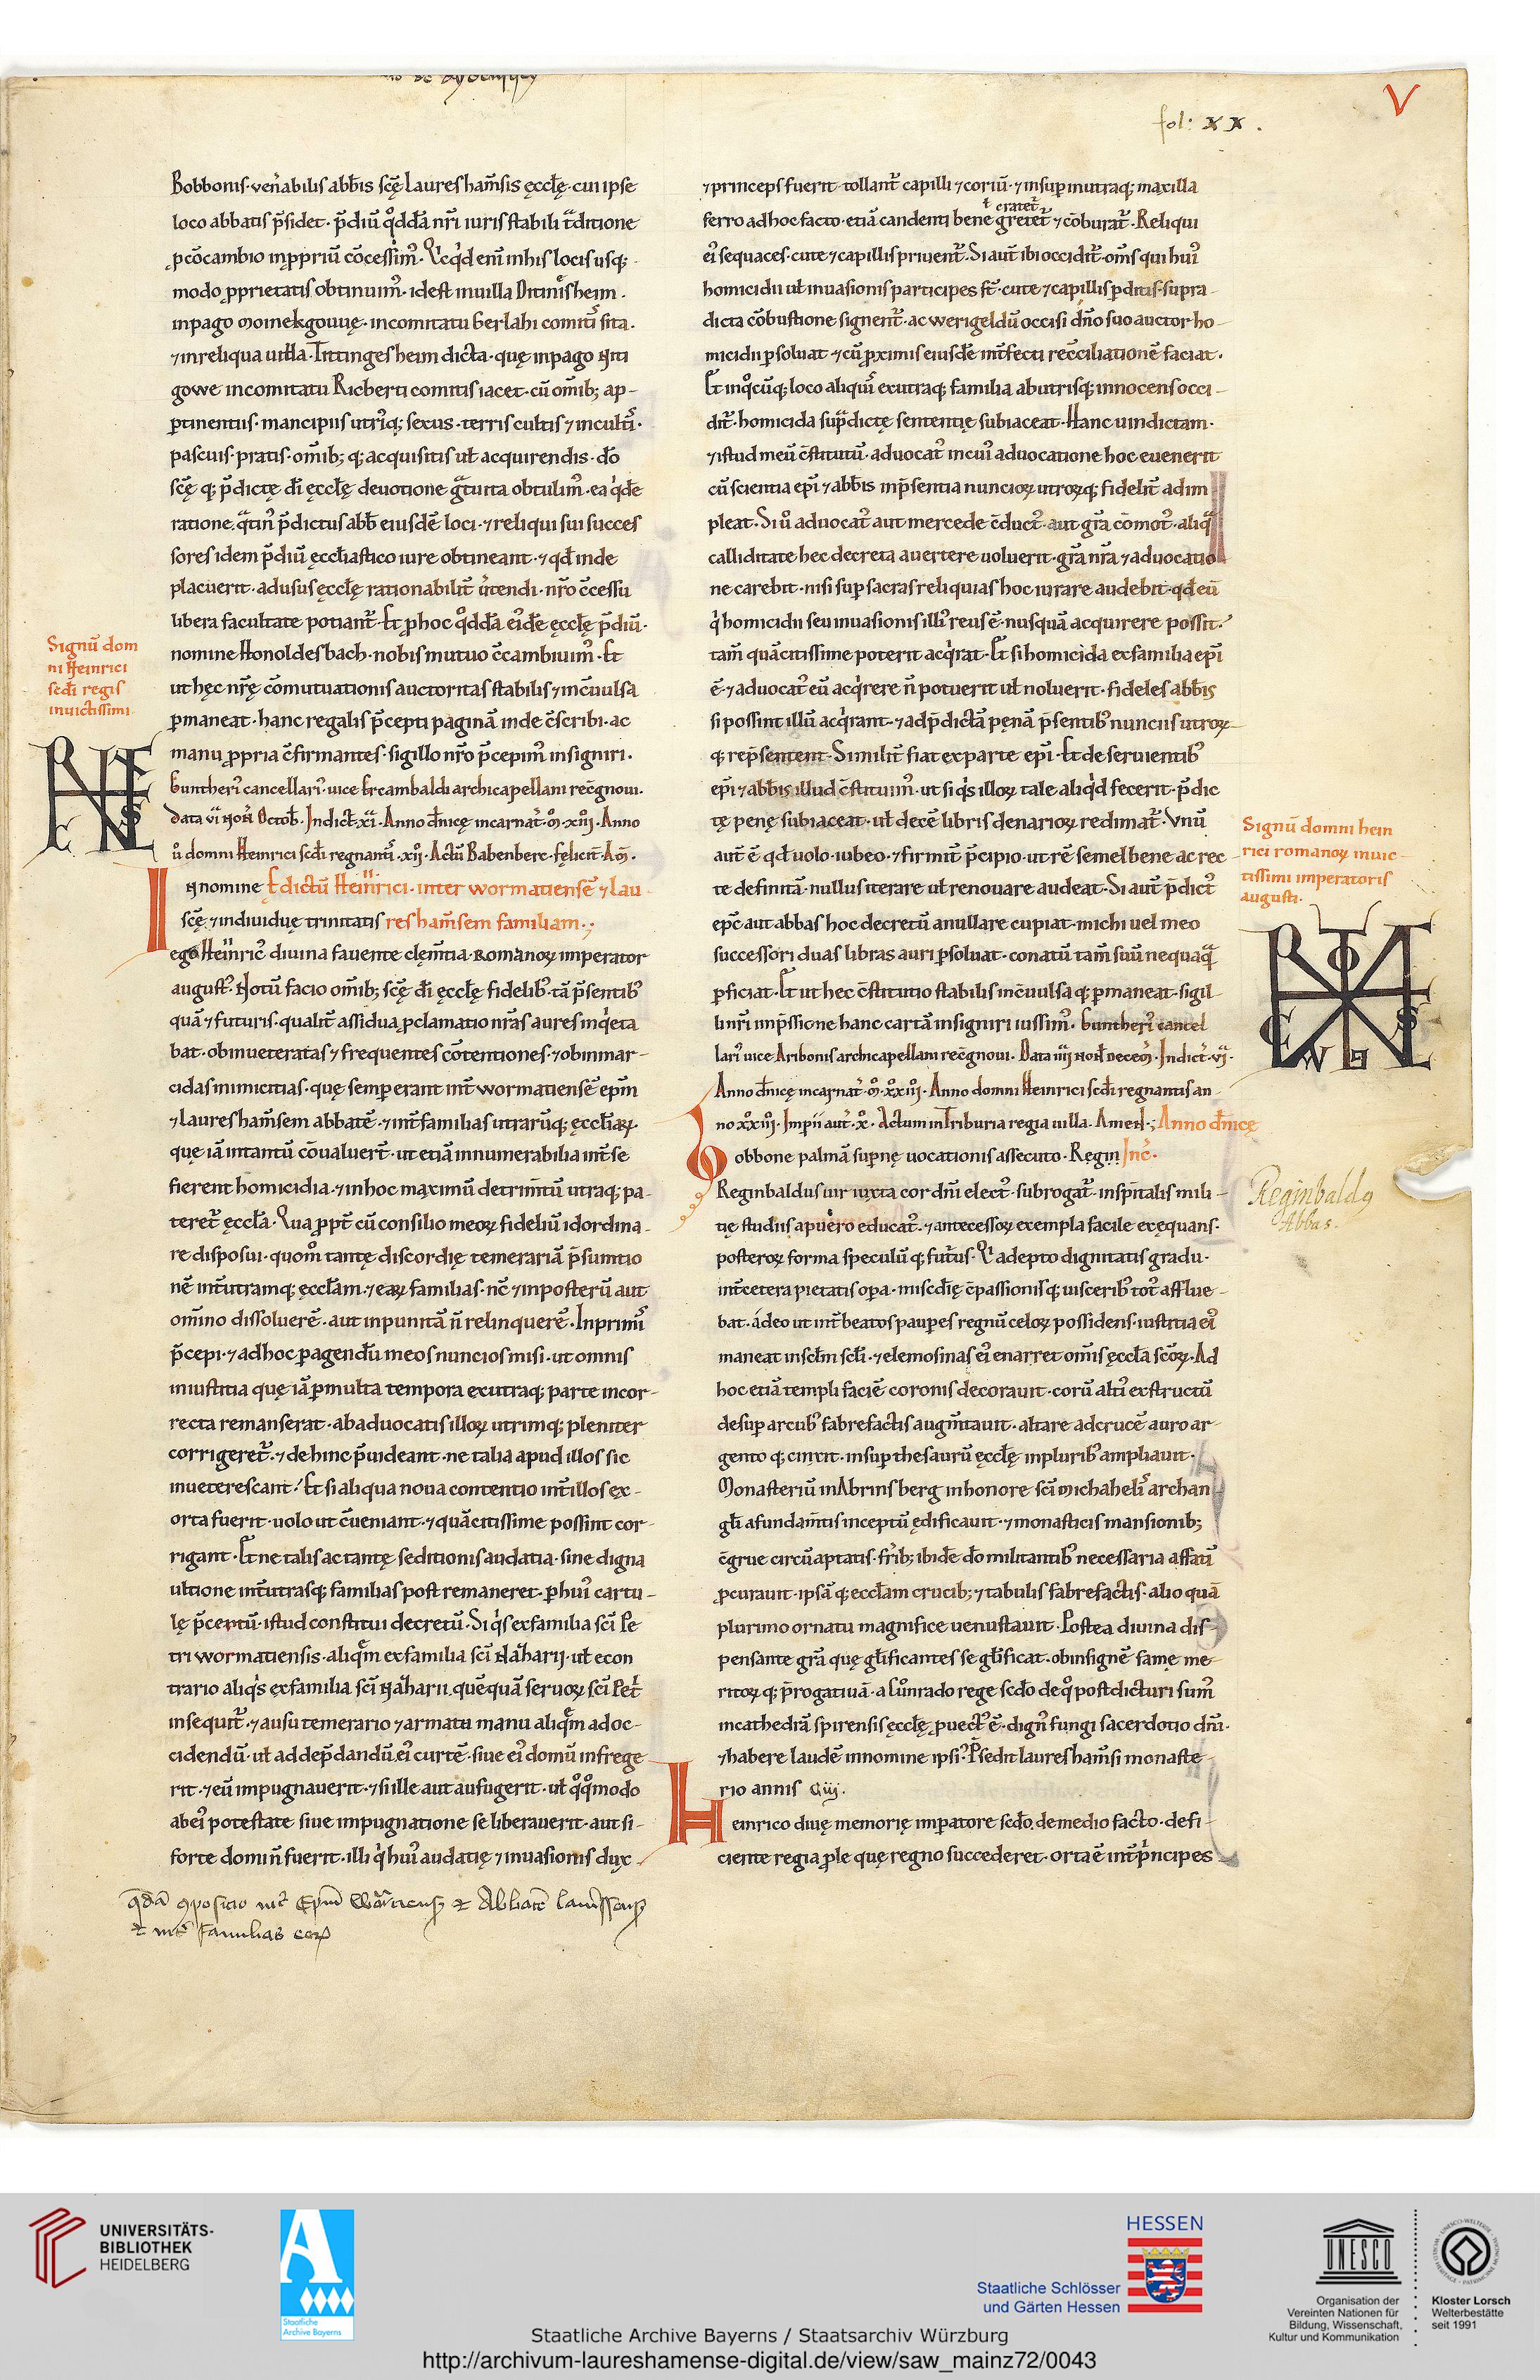 fol: xx.
V
Bobbonis· ven̄abilis abb̄is sc̄ę Lauresham̄sis ęccl̄ę· cui ipse
loco abbatis p̄sidet· p̄diū qͦddā nr̄i iuris stabili tᷓditione
ꝓ cōcambio inꝓpriū cōcessimꝰ. Qͥcqͥd eni̅ in his locis usq;
modo ꝓprietatis obtinuimꝰ· id est in uilla Ditinęsheim.
in pago moinekgouuę· in comitatu Gerlahi comitꝭ sita.
⁊ in reliqua uilla· Tittingesheim dicta· quę in pago Niti
gowe in comitatu Ricberti comitis iacet· cū om̄ib; ap-
ꝑtinentiis· mancipiis utriͥq; sexus· terris cultis ⁊ incultꝭ·
pascuis· pratis· om̄ib; q; acquisitis ul̄ acquirendis· dō
sc̄ę q; p̄dictę dī ęccl̄ę deuotione gᷓtuita obtulimꝰ· ea qͥde
ratione· qᷓtinꝰ p̄dictus abb̄ eiusdē loci· ⁊ reliqui sui succes
sores idem p̄diū ęccl̄iastico iure obtineant· ⁊ qd̄ inde
placuerit· ad usus ęccl̄ę rationabilit̄ utendi· nr̄o c̄cessu
libera facultate potiant᷑· Et ꝓ hoc qͦddā eiꝰdē ęccl̄ę p̄diū·
nomine Honoldesbach· nobis mutuo c̄cambiuimꝰ· Et
ut hęc nr̄ę cōmutationis auctoritas stabilis ⁊ inc̄uulsa
ꝑmaneat· hanc regalis p̄cepti paginā inde c̄scribi· ac
manu ꝓpria c̄firmantes· sigillo nr̄o p̄cepimꝰ insigniri.
Guntheriꝰ cancellariꝰ· uice Ercambaldi archicapellani rec̄gnoui.
Data vi̅ Noṅ Octob̄· Indict̄· xi̅· Anno dn̄icę incarnat̄· ͦm· xiii· Anno
ů domni Heinrici scd̄i regnantꝭ· xii· Actū Babenberc· fęlicit̄· Am̄.
Signū dom
ni Heinrici
scd̄i regis
inuictissimi·
Edictū Heinrici· inter wormatiensē ⁊ Lau
resham̄sem familiam.;
IN nomine
sc̄ę ⁊ indiuiduę trinitatis
ego Heinricꝰ diuina fauente clem̄tia· Romanoꝝ imperator
augustꝰ. Notū facio om̄ib; sc̄ę dī ęccl̄ę fidelibꝰ· tā p̄sentibꝰ
quā ⁊ futuris· qualit̄ assidua ꝓclamatio nr̄as aures inqͥeta
bat· ob inueteratas ⁊ frequentes cōtentiones· ⁊ ob inmar-
cidas inimicitias· quę semper erant int̄ wormatiensē epm̄
⁊ Lauresham̄sem abbatē· ⁊ int̄ familias utrarūq; ęccl̄iaꝝ·
que iā intantū cōualuer̄t· ut etiā innumerabilia int̄ se
fierent homicidia· ⁊ in hoc maximū detrim̄tū utraq; pa-
teret᷑ ęccl̄a· Qua ꝓpt̄ cū consilio meoꝝ fideliū id ordina-
re disposui· quom̊ tantę discordię temerariā p̄sumtio
nē int̄ utramq; ęccl̄am· ⁊ eaꝝ familias· nc̄ ⁊ inposterū aut
om̄ino dissoluerē· aut inpunitā n̄ relinquerē· Inprimꝭ
p̄cepi· ⁊ ad hoc ꝑagendū meos nuncios misi· ut omnis
iniustitia quę iā ꝑ multa tempora ex utraq; parte incor-
recta remanserat· ab aduocatis illoꝝ utrimq; pleniter
corrigeret᷑· ⁊ dehinc p̄uideant· ne talia apud illos sic
inueterescant· Et si aliqua noua contentio int̄ illos ex-
orta fuerit· uolo ut c̄ueniant· ⁊ quācitissime possint cor-
rigant· Et ne talis ac tantę seditionis audatia· sine digna
ultione int̄ utrasq; familias post remaneret· ꝑ huiꝰ cartu-
lę p̄ceptū· istud constitui decretū· Si qͥs ex familia sc̄i Pe
tri wormatiensis· aliqͤm ex familia sc̄i Nazharii· ul̄ econ
trario aliqͥs ex familia sc̄i Nazharii· quēquā seruoꝝ sc̄i Pet̄
insequit᷑· ⁊ ausu temerario ⁊ armata manu aliqͤm ad oc-
cidendū· ul̄ ad dep̄dandū eiꝰ curtē· siue eiꝰ domū infrege
rit· ⁊ eū impugnauerit· ⁊ si ille aut aufugerit· ul̄ qͦqͦmodo
ab eiꝰ potestate siue impugnatione se liberauerit· aut si-
forte domi n̄ fuerit· illi qͥ huiꝰ audatię ⁊ inuasionis dux
⁊ princeps fuerit· tollant᷑ capilli ⁊ coriū· ⁊ insuꝑ in utraq; maxilla
ł cratet᷑
ferro ad hoc facto· etiā candenti bene gretet᷑ ⁊ cōburat᷑· Reliqui
eiꝰ sequaces· cute ⁊ capillis priuent᷑· Si aut̄ ibi occidit᷑· om̄s qui huiꝰ
homicidii ul̄ inuasionis participes st̄· cute ⁊ capillis ꝑditis· supra-
dicta cōbustione signent᷑· ac werigeldū occisi dn̄o suo auctor ho-
micidii ꝑsoluat· ⁊ cū ꝓximis eiusdē int̄fecti rec̄ciliationē faciat·
Et in qͦcūq; loco aliquꝭ ex utraq; familia ab utrisq; innocens occi-
dit᷑· homicida sup̄dictę sententię subiaceat· Hanc uindictam·
⁊ istud meū c̄stitutū· aduocatꝰ in cuiꝰ aduocatione hoc euenerit
cū scientia epi̅ ⁊ abb̄is in p̄sentia nuncioꝝ utroꝝq; fidelit̄ adim
pleat· Si ů aduocatꝰ aut mercede c̄ductꝰ· aut gr̄a cōmotꝰ· aliqᷓ
calliditate hec decreta auertere uoluerit· gr̄a nr̄a ⁊ aduocatio
ne carebit· nisi suꝑ sacras reliquias hoc iurare audebit· qd̄ eū
qͥ homicidii seu inuasionis illiꝰ reus ē· nusquā acquirere possit·
tam̄ quācitissime poterit acqͥrat· Et si homicida ex familia epi̅
ē· ⁊ aduocatꝰ eū acqͥrere n̄ potuerit ul̄ noluerit· fideles abb̄is
si possint illū acqͥrant· ⁊ ad p̄dictā pęnā p̄sentibꝰ nunciis utroꝝ-
q; rep̄sentent· Similit̄ fiat ex parte epi̅· Et de seruientibꝰ
epi̅ ⁊ abb̄is illud c̄stituimꝰ· ut si qͥs illoꝝ tale aliqͥd fecerit· p̄dic
tę penę subiaceat· ul̄ decē libris denarioꝝ redimat᷑· Vnū
aut̄ ē qd̄ uolo· iubeo· ⁊ firmit̄ p̄cipio· ut rē semel bene ac rec-
te definitā· nullus iterare ul̄ renouare audeat· Si aut̄ p̄dictꝰ
epc̄ aut abbas hoc decretū anullare cupiat· michi uel meo
successori duas libras auri ꝑsoluat· conatū tam̄ suū nequaqᷓ
ꝑficiat· Et ut hec c̄stitutio stabilis inc̄uulsa q; ꝑmaneat· sigil-
li nr̄i inp̄ssione hanc cartā insigniri iussimꝰ· Guntheriꝰ cancel
lariꝰ uice Aribonis archicapellani rec̄gnoui· Data iiii noṅ decem̄· Indict̄· vi̅·
Anno dn̄icę incarnat̄· ͦm· xͦxiii· Anno domni Heinrici scd̄i regnantis an-
no xͦxiii· Imp̄ii aut̄· xͦ· Actum in Triburia regia uilla· Amen·;
Signū domni hein
rici romanoꝝ inuic-
tissimi imperatoris
augusti·
Anno dn̄icę
Inc̄·
Bobbone palmā supn̄ę uocationis assecuto· Regin
Reginbaldus uir iuxta cor dn̄i electꝰ· subrogat᷑· in sp̄italis mili-
tię studiis a puero educatꝰ· ⁊ antecessoꝝ exempla facile exęquans·
posteroꝝ forma speculū q; futurꝰ· Qͥ adepto dignitatis gradu·
int̄ cetera pietatis oꝑa· misc̄dię c̄passionisq; uisceribꝰ totꝰ afflue-
bat· ádeo ut int̄ beatos pauꝑes regnū celoꝝ possidens· iustitia eiꝰ
maneat in sclm̄ scl̄i· ⁊ elemosinas eiꝰ enarret om̄is ęccl̄a sc̄oꝝ· Ad
hoc etiā templi faciē coronis decorauit· corū altiꝰ exstructū
desuꝑ arcubꝰ fabrefactis augm̄tauit· altare ad crucē auro ar-
gento q; cinxit· insuꝑ thesaurū ęccl̄ę in pluribꝰ ampliauit·
Monasteriū in Abrinsberg in honore sc̄i Michahelꝭ archan
gl̄i a fundam̄tis inceptū ędificauit· ⁊ monasticis mansionib;
c̄grue circū aptatis· fr̄ib; ibidē dō militantibꝰ necessaria affatī
ꝓcurauit· ipsā q; ecclam̄ crucib; ⁊ tabulis fabrefactis· alio quā
plurimo ornatu magnifice uenustauit· Postea diuina dis-
pensante gr̄a quę gl̄ificantes se gl̄ificat· ob insignē famę me-
ritoꝝ q; p̄rogatiuā· a Cůnrado rege scd̄o de qͦ post dicturi sumꝰ
in cathedrā spirensis ęccl̄ę ꝓuectꝰ ē· dignꝰ fungi sacerdotio dn̄i·
⁊ habere laudē in nomine ipsiꝰ· P̄sedit lauresham̄si monaste-
rio annis
Reginbaldꝰ
Abbas·
Heinrico diuę memorię imꝑatore scd̄o· de medio facto· defi-
ciente regia ꝓle quę regno succederet· orta ē int̄ p̄ncipes
qͣdā ꝯposicio int̄ Epm̄ Wormaciens̄ et Abbatē laurissens̄
et int̄ familias eoꝝ
UNIVERSITÄTS-
BIBLIOTHEK
HEIDELBERG
Staatliche
Archive Bayerns
HESSEN
Staatliche Schlösser
und Gärten Hessen
UNESCO
Organisation der
Vereinten Nationen für
Bildung, Wissenschaft,
Kultur und Kommunikation
Kloster Lorsch
Welterbestätte
seit 1991
Staatliche Archive Bayerns / Staatsarchiv Würzburg
http://archivum-laureshamense-digital.de/view/saw_mainz72/0043